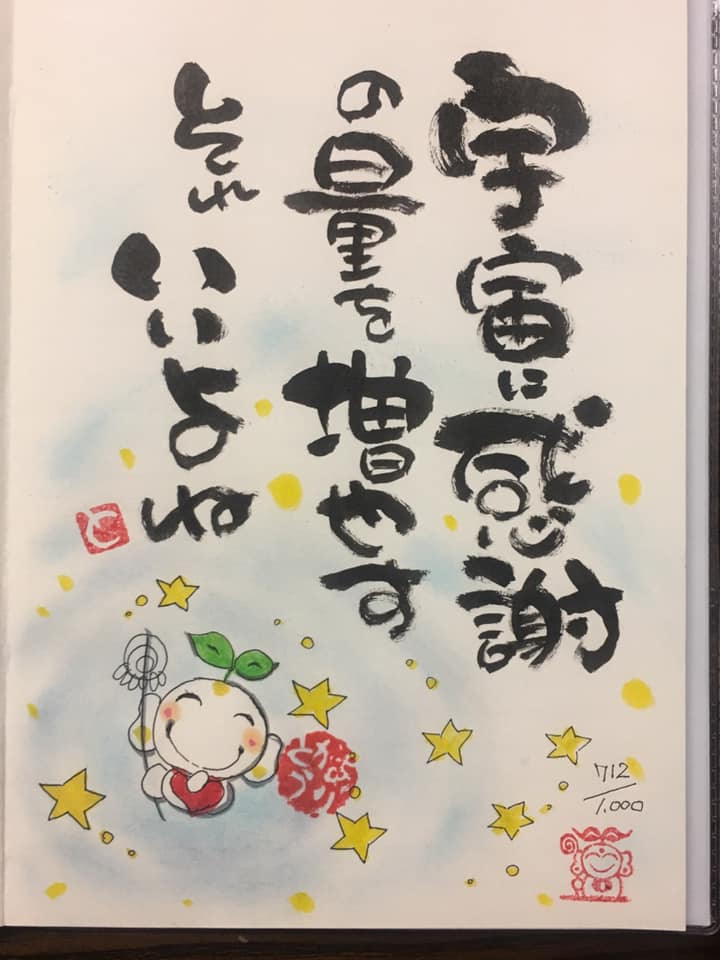 宇宙に感謝
の量を増やす
それいいよね
と
712
1,000